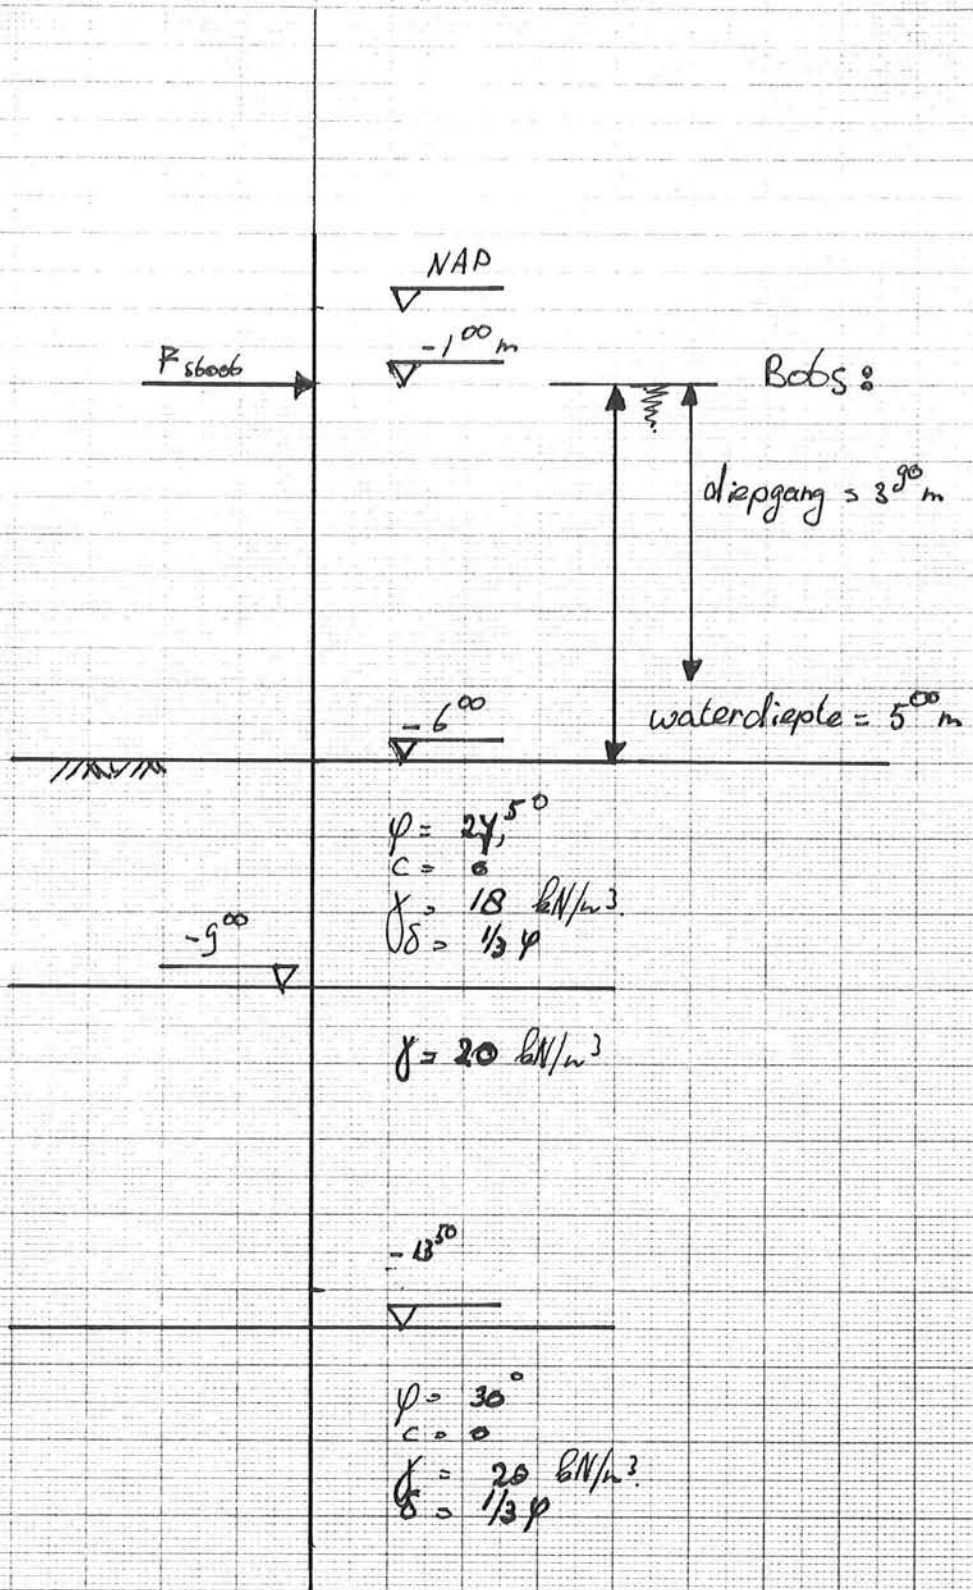 NAP
-1⁰⁰ m
F stoot
Bots :
diepgang = 3⁹⁰ m
-6⁰⁰
waterdiepte = 5⁰⁰ m
φ = 27,5°
c = 0
γ = 18 kN/m³.
δ = 1/3 φ
-9⁰⁰
γ = 20 kN/m³
-13⁵⁰
φ = 30°
c = 0
γ = 20 kN/m³.
δ = 1/3 φ